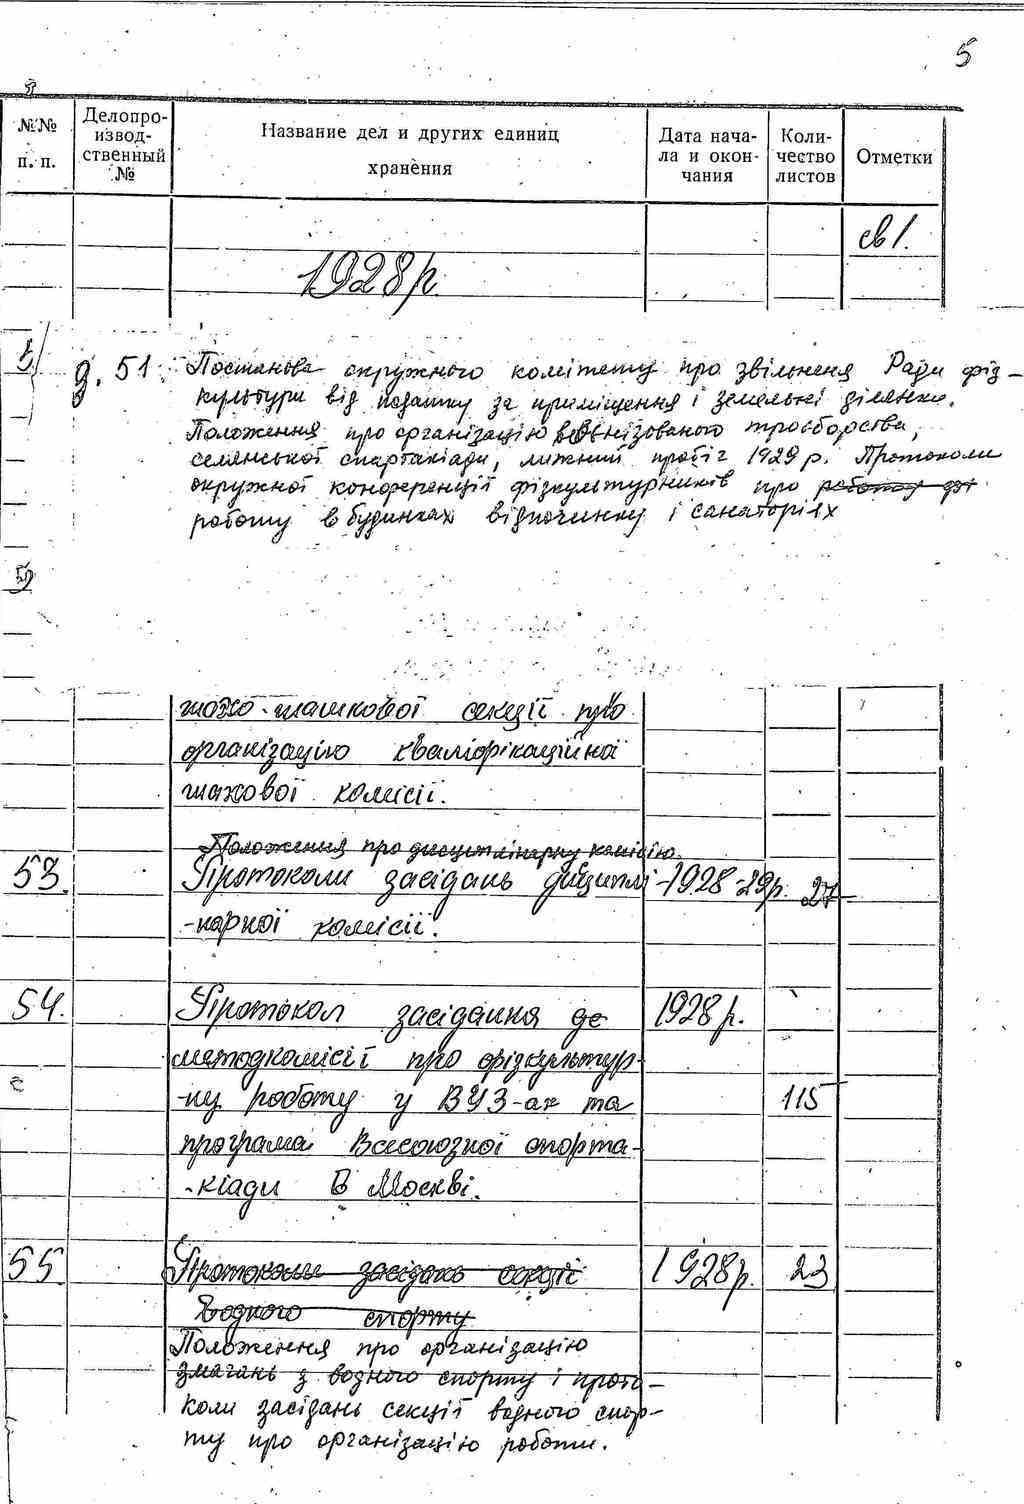 5
№№ п. п.
Делопро-
извод-
ственный
№
Название дел и других единиц
хранения
Дата нача-
ла и окон-
чания
Коли-
чество
листов
Отметки
св 1.
1928 р.
д. 51. Постанова окружного комітету про звільненя Ради фіз-
культури від податку за приміщення і земельні ділянки.
Положення про організацію троєборства,
селянської спартакіади, лижний пробіг 1929 р. Протоколи
окружної конференції фізкультурників про роботу фі
роботу в будинках відпочинку і санаторіях
шахо-машкової секції про
організацію кваліфікаційної
шахової комісії.
Положення про дисциплінарну комісію.
53. Протоколи засідань дисциплі- 1928-29р. 27
-нарної комісії.
54. Протокол засідання 1928 р.
методкомісії про фізкультур-
-ну роботу у ВУЗ-ах та 115
програма Всесоюзної спарта-
-кіади в Москві.
55 Протоколи засідань секції 1928р. 23
Водного спорту
Положення про організацію
змагань з водного спорту і прото-
коли засідань секції водного спор-
ту про організацію роботи.